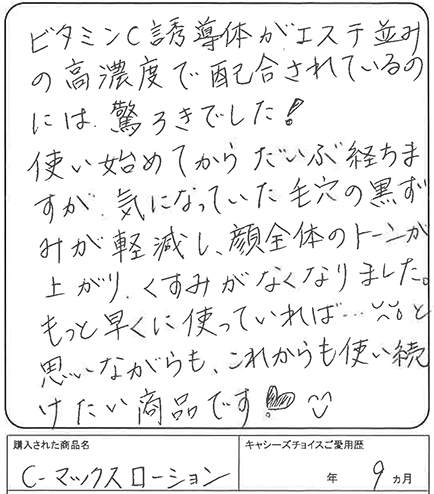 ビタミンC誘導体がエステ並み
の高濃度で配合されているの
には、驚ろきでした!
使い始めてからだいぶ経ちま
すが、気になっていた毛穴の黒ず
みが軽減し、顔全体のトーンが
上がり、くすみがなくなりました。
もっと早くに使っていれば…と
思いながらも、これからも使い続
けたい商品です!
購入された商品名
キャシーズチョイスご愛用歴
C-マックスローション
年 9ヵ月